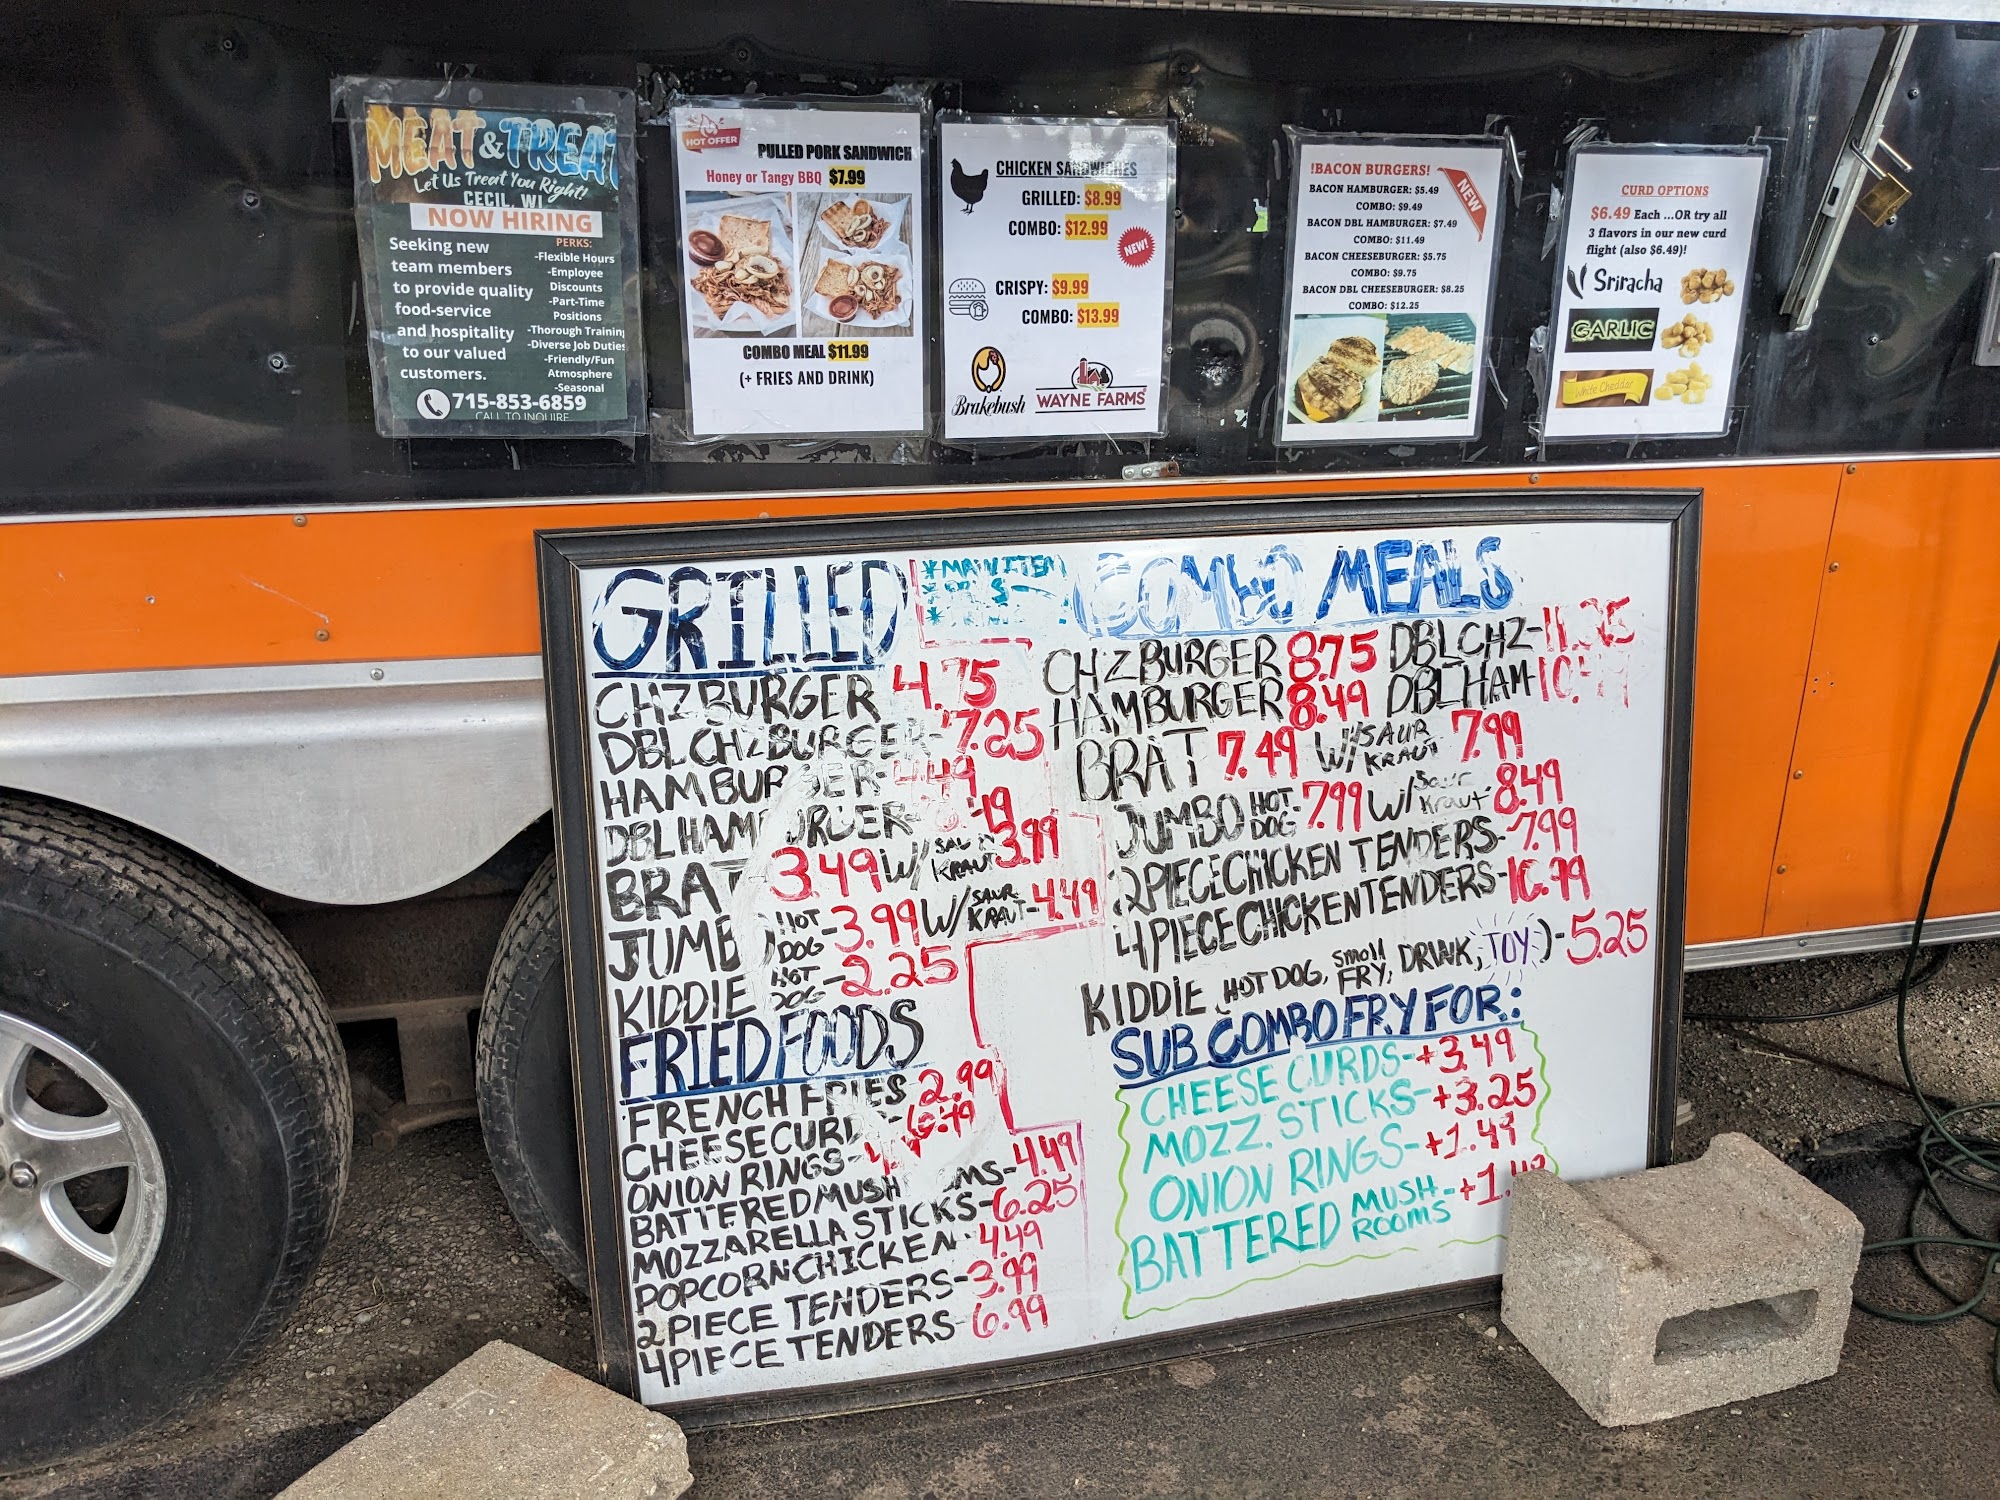 MEAT & TREAT
Let Us Treat You Right!
CECIL, WI
NOW HIRING
Seeking new
team members
to provide quality
food-service
and hospitality
to our valued
customers.
PERKS:
-Flexible Hours
-Employee
Discounts
-Part-Time
Positions
-Thorough Training
-Diverse Job Duties
-Friendly/Fun
Atmosphere
-Seasonal
715-853-6859
CALL TO INQUIRE
HOT OFFER
PULLED PORK SANDWICH
Honey or Tangy BBQ $7.99
COMBO MEAL $11.99
(+ FRIES AND DRINK)
CHICKEN SANDWICHES
GRILLED: $8.99
COMBO: $12.99
NEW!
CRISPY: $9.99
COMBO: $13.99
Brakebush
WAYNE FARMS
!BACON BURGERS!
NEW
BACON HAMBURGER: $5.49
COMBO: $9.49
BACON DBL HAMBURGER: $7.49
COMBO: $11.49
BACON CHEESEBURGER: $5.75
COMBO: $9.75
BACON DBL CHEESEBURGER: $8.25
COMBO: $12.25
CURD OPTIONS
$6.49 Each ...OR try all
3 flavors in our new curd
flight (also $6.49)!
Sriracha
GARLIC
White Cheddar
GRILLED
CHZBURGER 4.75
DBLCHZBURGER-7.25
HAMBURGER-4.49
DBLHAMBURGER-
BRAT 3.49 W/ SAUR KRAUT 3.99
JUMBO HOT DOG-3.99 W/ SAUR KRAUT-4.49
KIDDIE HOT DOG-2.25
FRIED FOODS
FRENCH FRIES 2.99
CHEESECURDS-6.49
ONION RINGS-
BATTERED MUSHROOMS-4.49
MOZZARELLA STICKS-6.25
POPCORN CHICKEN-4.49
2PIECE TENDERS-3.99
4PIECE TENDERS-6.99
*MAIN ITEM
COMBO MEALS
CHZBURGER 8.75 DBLCHZ-11.25
HAMBURGER 8.49 DBLHAM-10.49
BRAT 7.49 W/ SAUR KRAUT 7.99
JUMBO HOT DOG-7.99 W/ SAUR KRAUT 8.49
2PIECE CHICKEN TENDERS-7.99
4PIECE CHICKEN TENDERS-10.99
KIDDIE (HOT DOG, SMALL FRY, DRINK, TOY)-5.25
SUB COMBO FRY FOR:
CHEESE CURDS-+3.49
MOZZ. STICKS-+3.25
ONION RINGS-+1.49
BATTERED MUSH-ROOMS-+1.49